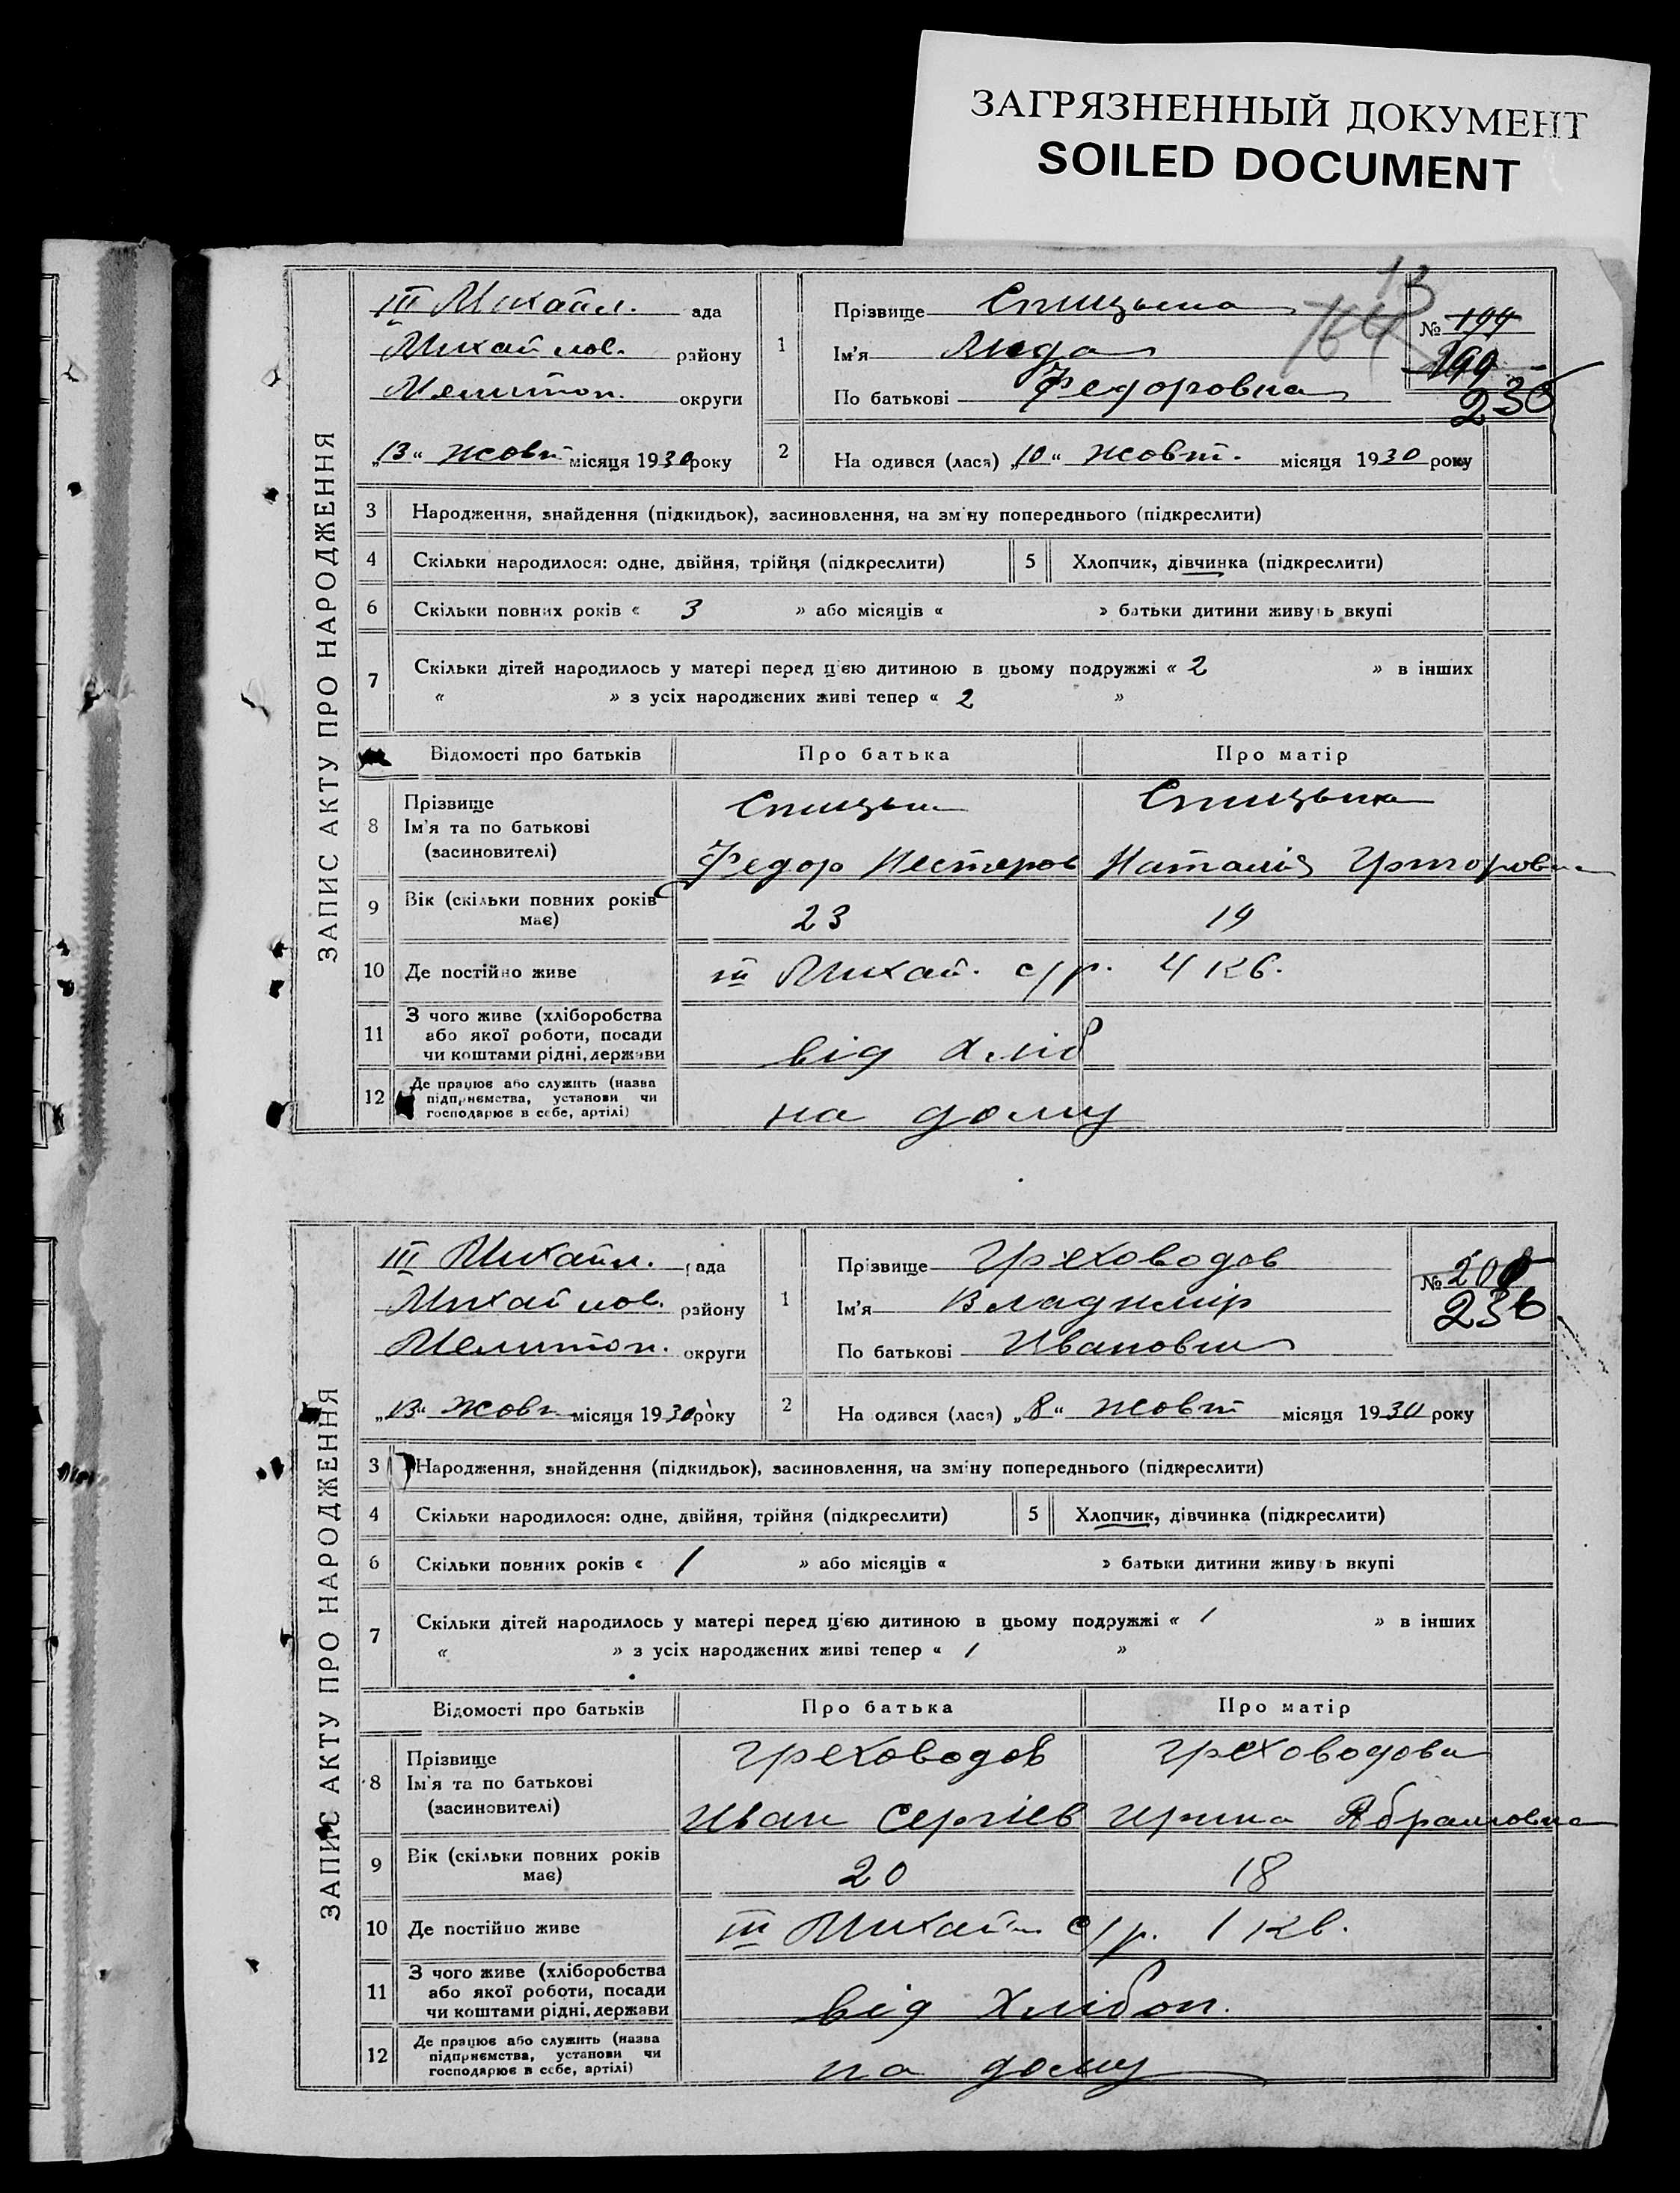 ЗАГРЯЗНЕННЫЙ ДОКУМЕНТ
SOILED DOCUMENT
ЗАПИС АКТУ ПРО НАРОДЖЕННЯ
III Михайл. ада
Михайлов. району
Мелитоп. округи
„13“ жовт місяця 1930 року
1 Прізвище Спицына
Ім'я Лида
По батькові Федоровна
13
164
№ 199
199
230
2 На одився (лася) „10“ жовт. місяця 1930 року
3 Народження, знайдення (підкидьок), засиновлення, на зміну попереднього (підкреслити)
4 Скільки народилося: одне, двійня, трійня (підкреслити) 5 Хлопчик, дівчинка (підкреслити)
6 Скільки повних років « 3 » або місяців « » батьки дитини живуть вкупі
7 Скільки дітей народилось у матері перед цією дитиною в цьому подружжі « 2 » в інших
« » з усіх народжених живі тепер « 2 »
Відомості про батьків Про батька Про матір
8 Прізвище Спицын Спицына
Ім'я та по батькові
(засиновителі) Федор Нестеров Наталія Григоровна
9 Вік (скільки повних років
має) 23 19
10 Де постійно живе III Михай. с/р. 4 кв.
11 З чого живе (хліборобства
або якої роботи, посади
чи коштами рідні, держави від хліб
12 Де працює або служить (назва
підприємства, установи чи
господарює в себе, артілі) на дому
ЗАПИС АКТУ ПРО НАРОДЖЕННЯ
III Михайл. рада
Михайлов. району
Мелитоп. округи
„13“ жовт місяця 1930 року
1 Прізвище Греховодов
Ім'я Владимір
По батькові Иванович
№ 200
236
2 На одився (лася) „8“ жовт місяця 1930 року
3 Народження, знайдення (підкидьок), засиновлення, на зміну попереднього (підкреслити)
4 Скільки народилося: одне, двійня, трійня (підкреслити) 5 Хлопчик, дівчинка (підкреслити)
6 Скільки повних років « 1 » або місяців « » батьки дитини живуть вкупі
7 Скільки дітей народилось у матері перед цією дитиною в цьому подружжі « 1 » в інших
« » з усіх народжених живі тепер « 1 »
Відомості про батьків Про батька Про матір
8 Прізвище Греховодов Греховодова
Ім'я та по батькові
(засиновителі) Иван Сергіев Ирина Абрамовна
9 Вік (скільки повних років
має) 20 18
10 Де постійно живе III Михай с/р. 1 кв.
11 З чого живе (хліборобства
або якої роботи, посади
чи коштами рідні, держави від хлібоп.
12 Де працює або служить (назва
підприємства, установи чи
господарює в себе, артілі) на дому